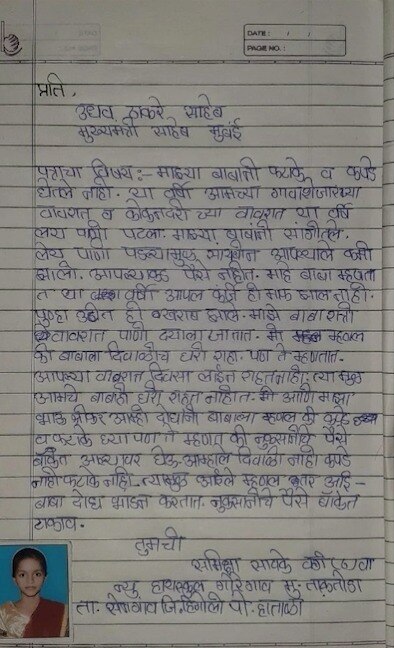 DATE : / /
PAGE NO. :
प्रति,
उध्दव ठाकरे साहेब
मुख्यमंत्री साहेब मुंबई
पत्राचा विषय :- माझ्या बाबांनी फटाके व कपडे
घेतले नाही. या वर्षी आमच्या गावाशेजारच्या
वावरात व कोकनवरी च्या वावरात या वर्षी
लय पाणी पडला. माझ्या बाबांनी सांगीतले.
लय पाणी पडल्यामुळ सोयाबीन आपल्याले कमी
झाली. आपल्याकडं पैसे नाहीत. माहे बाबा म्हणता
त या वर्षी आपल कर्ज ही माफ झाल नाही.
पुन्हा उडीत ही खराब झाले. माझे बाबा रात्री
वावरात पाणी द्यायला जातात. मी म्हणल
की बाबाला दिवाळीच घरी राहा. पण ते म्हणतात.
आपल्या वावरात दिवसा लाईन राहत नाही. त्या मुळ
आमचे बाबाही घरी राहत नाहीत. मी आणि माझा
भाऊ आम्ही दोघांनी बाबाला म्हणल की कपडे
व फटाके घ्या पण ते म्हणत की नुकसानीचे पैसे
बॅंकेत आल्यावर घेऊ. आम्हाले दिवाळी नाही कपडे
नाही फटाके नाही. त्यामुळ आईले म्हणल तर आई-
बाबा दोघ भांडन करतात. नुकसानीचे पैसे बॅंकेत
टाकाव.
तुमची
समिक्षा सावके वर्ग
न्यु हायस्कुल गोरेगाव मु. ताकतोडा
ता. सेनगाव जि. हिंगोली पो. हाताळा